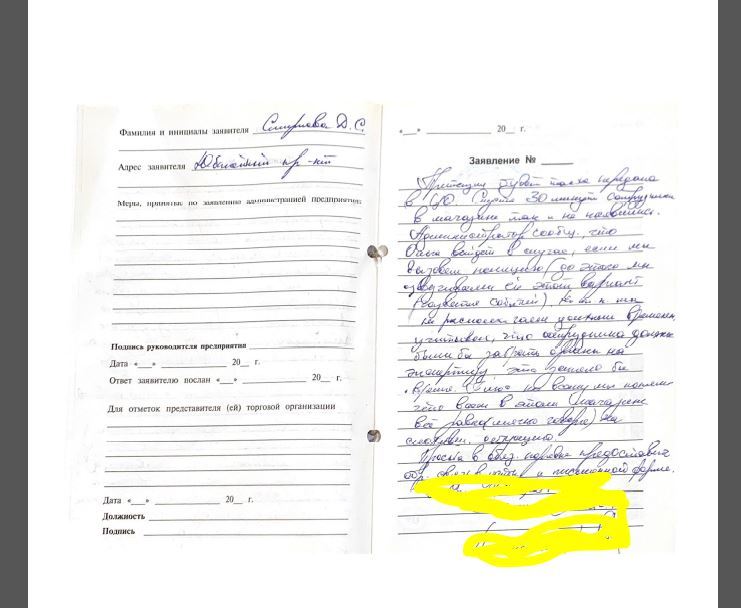 Фамилия и инициалы заявителя Смирнова Д.С.
Адрес заявителя Юбилейный пр-кт
Меры, принятые по заявлению администрацией предприятия
Подпись руководителя предприятия
Дата «__» ________ 20__ г.
Ответ заявителю послан «__» ________ 20__ г.
Для отметок представителя (ей) торговой организации
Дата «__» ________ 20__ г.
Должность
Подпись
«__» ________ 20__ г.
Заявление № ____
Претензия будет также передана
в ЦО. Спустя 30 минут сотрудники
в магазине так и не появились.
Администратор сообщ. что
выйдет в случае, если мы
вызовем полицию (до этого мы
озвучивали ей этот вариант
развития событий).
не располагаем должным временем,
учитывая, что сотрудники должны
были бы забрать на
экспертизу это заняло бы
время.
что всем в этом магазине
всё равно (мягко говоря) на
Просьба в обяз. порядке предоставить
обр. связь в и письменной форме.